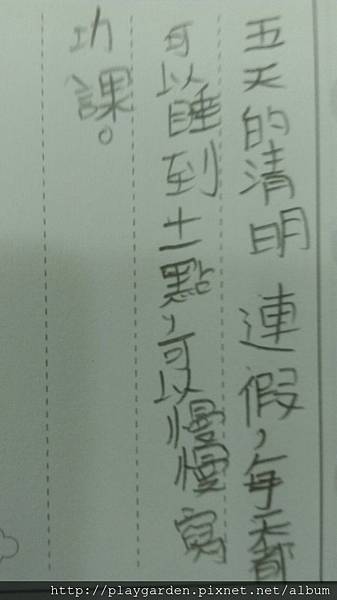 五天的清明連假,每天都
可以睡到十一點,可以慢慢寫
功課。
http://playgarden.pixnet.net/album